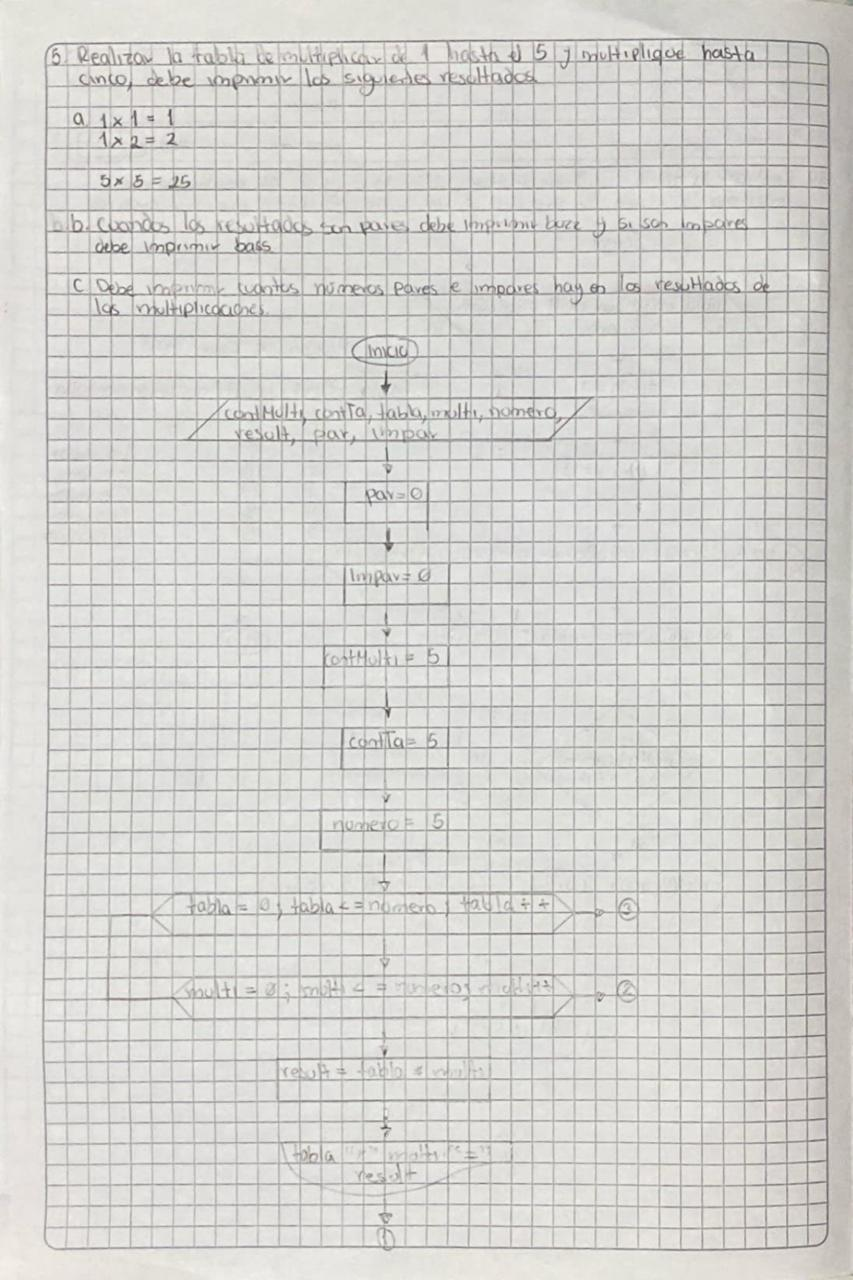 5. Realizar la tabla de multiplicar de 1 hasta el 5 y multiplique hasta
cinco, debe imprimir los siguientes resultados
a. 1 x 1 = 1
1 x 2 = 2
5 x 5 = 25
b. Cuandos los resultados son pares debe imprimir buzz y si son impares
debe imprimir bass
C. Debe imprimir cuantos números pares e impares hay en los resultados de
las multiplicaciones.
Inicio
contMulti, contTa, tabla, multi, numero,
result, par, impar
par = 0
Impar = 0
contMulti = 5
contTa = 5
numero = 5
tabla = 0; tabla <= numero; tabla ++
3
multi = 0; multi <= numero; multi ++
2
result = tabla * multi
tabla "*" multi "="
result
1